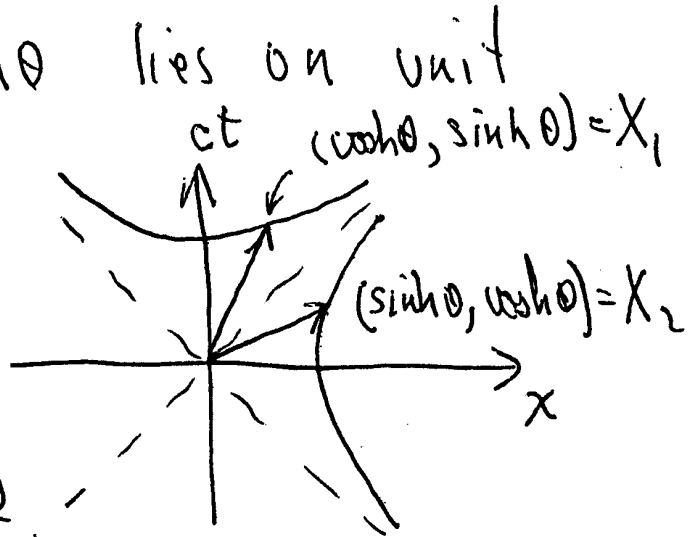 θ lies on unit
ct (coshθ, sinhθ) = X₁
(sinhθ, coshθ) = X₂
x